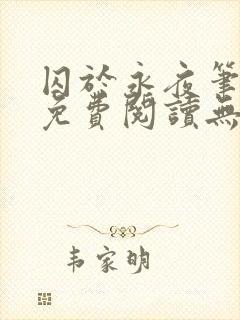 囚於永夜筆
免費閱讀無
韦家明